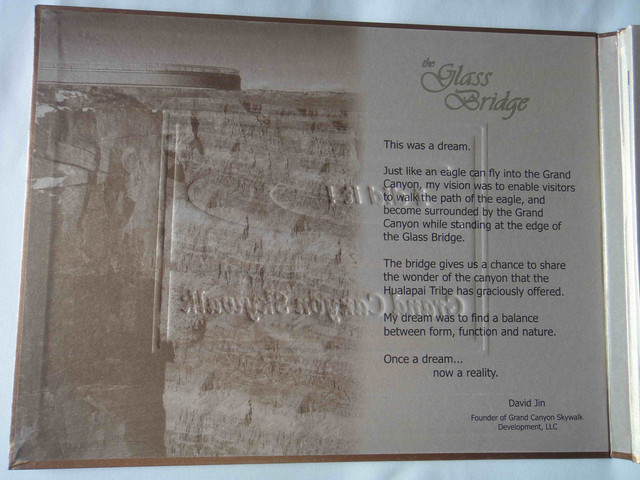 the
Glass
Bridge
This was a dream.
Just like an eagle can fly into the Grand
Canyon, my vision was to enable visitors
to walk the path of the eagle, and
become surrounded by the Grand
Canyon while standing at the edge of
the Glass Bridge.
The bridge gives us a chance to share
the wonder of the canyon that the
Hualapai Tribe has graciously offered.
My dream was to find a balance
between form, function and nature.
Once a dream...
now a reality.
David Jin
Founder of Grand Canyon Skywalk
Development, LLC
Grand Canyon Skywalk